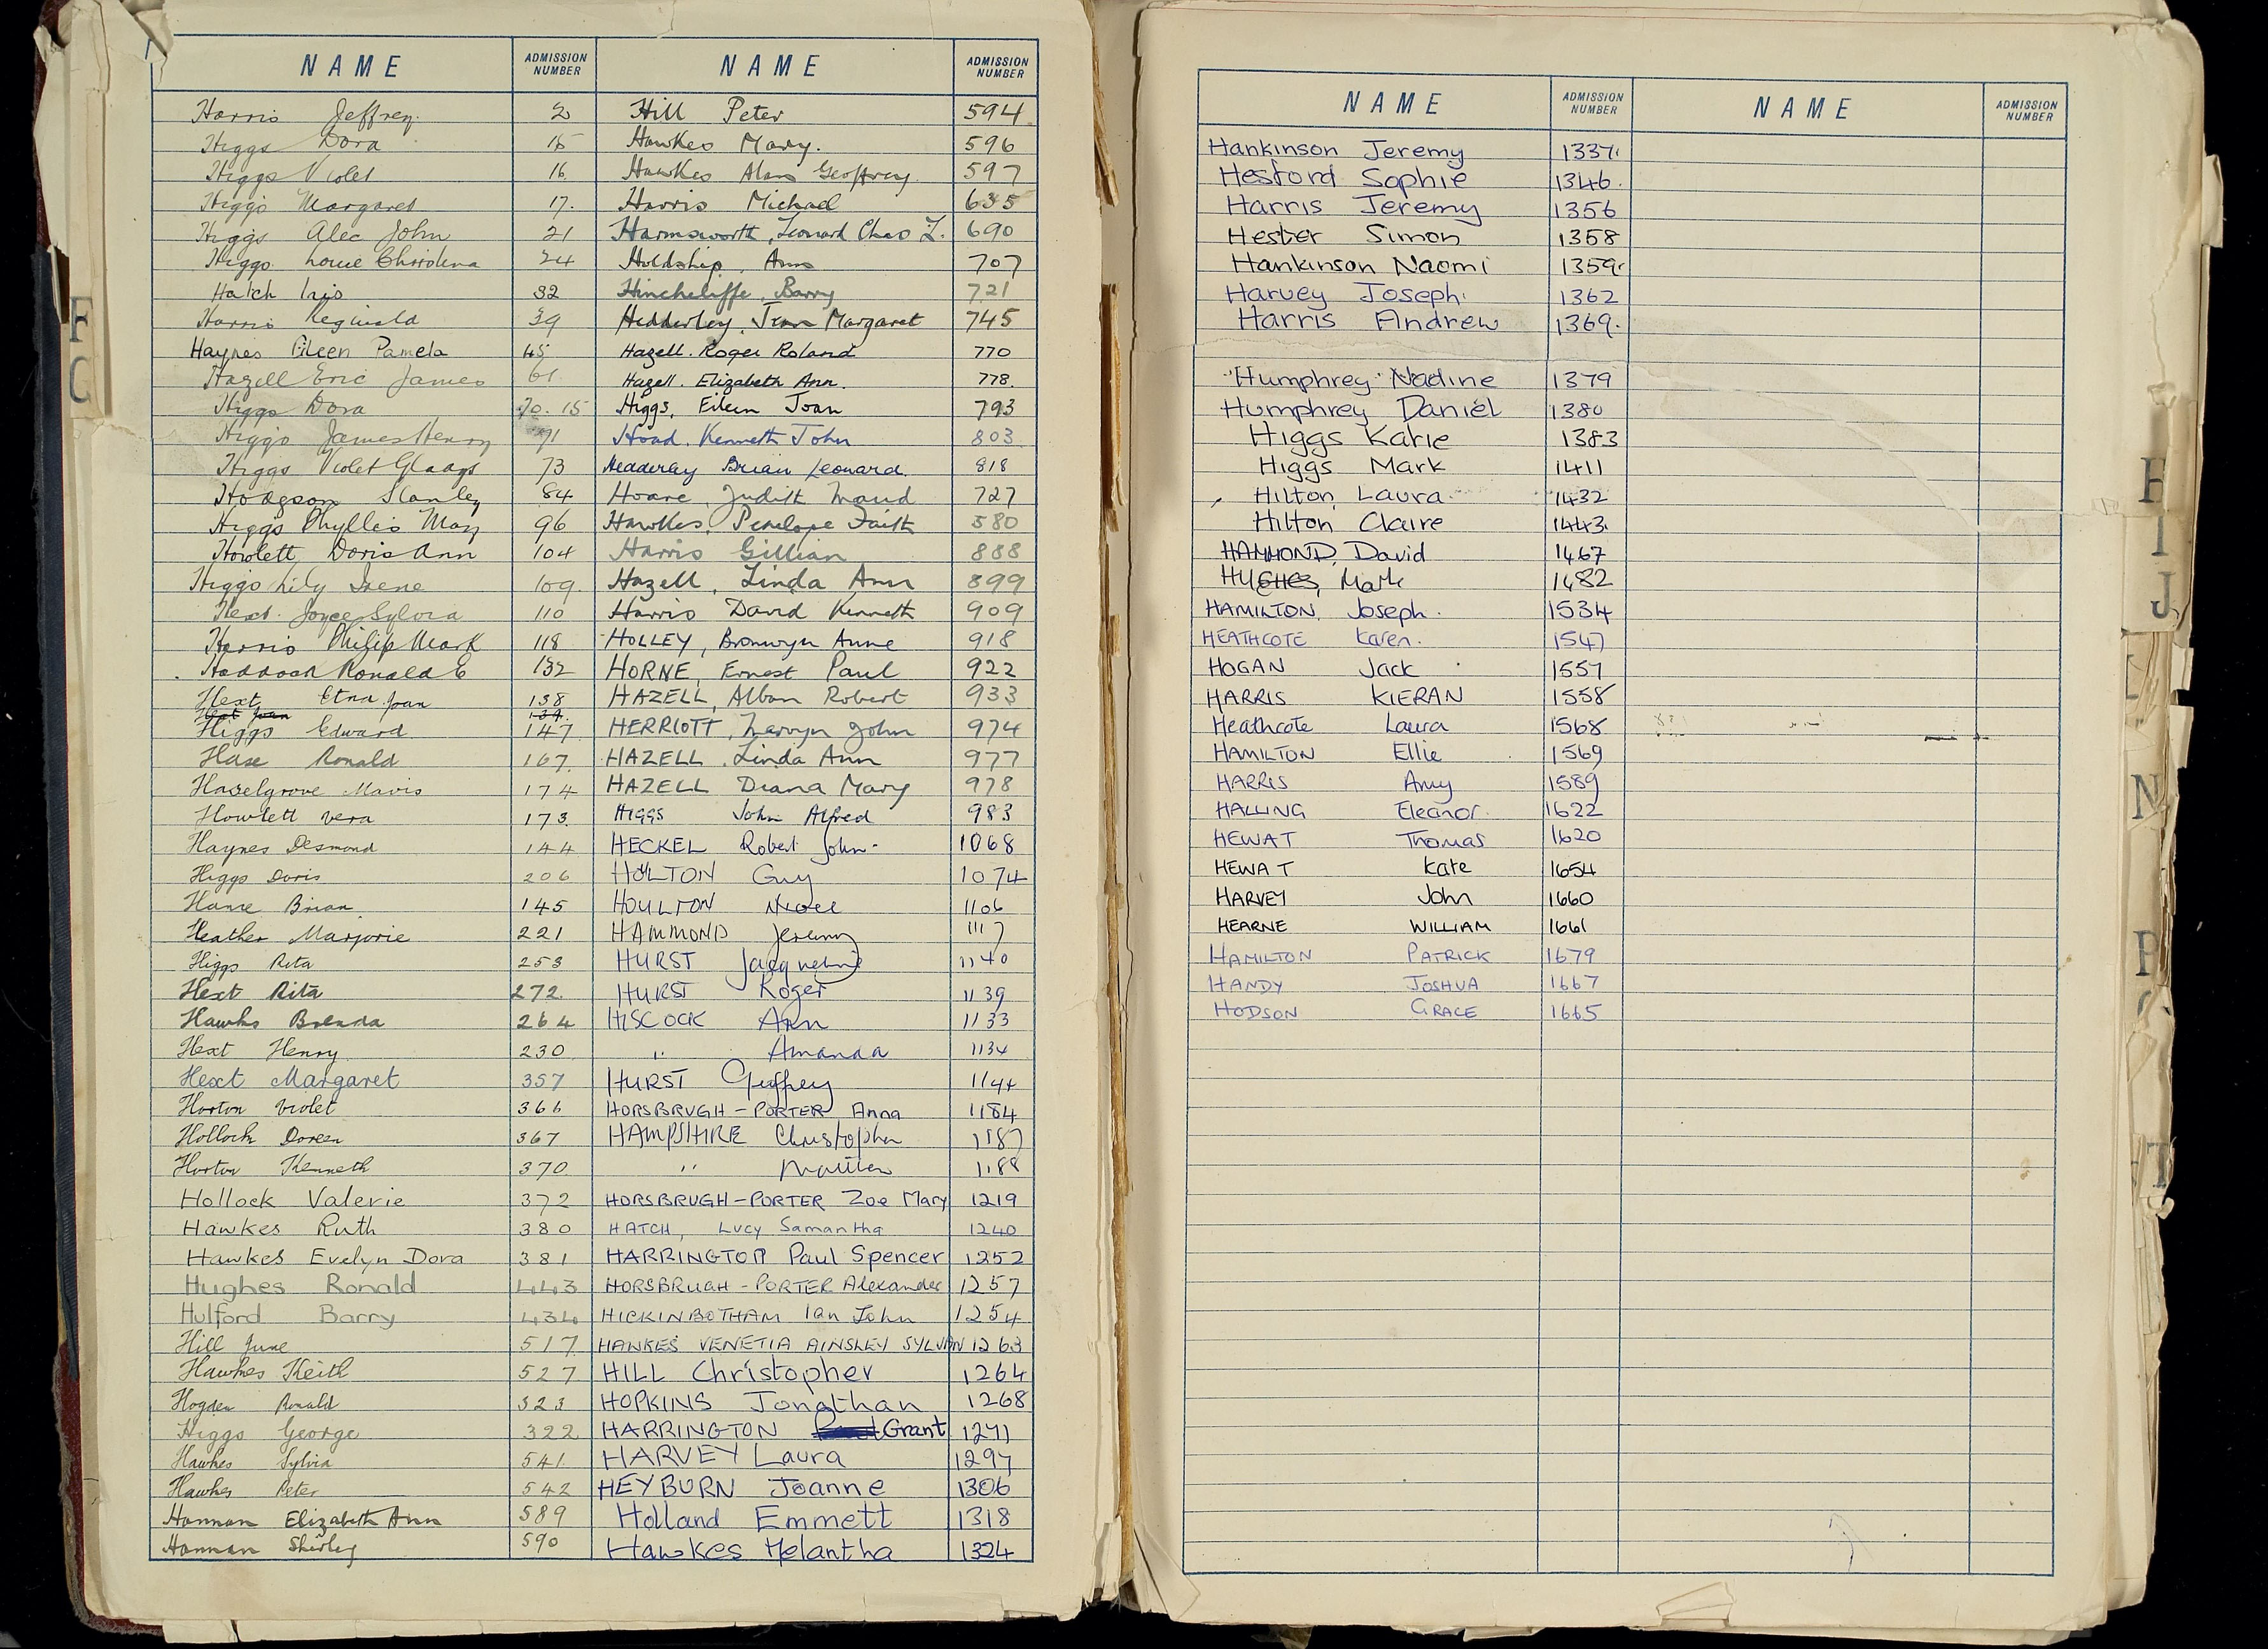 NAME ADMISSION NUMBER
Harris Jeffrey. 2
Higgs Dora 15
Higgs Violet 16
Higgs Margaret 17.
Higgs Alec John 21
Higgs Louie Christina 24
Hatch Iris 32
Harris Reginald 39
Haynes Eileen Pamela 45
Hazell Eric James 61
Higgs Dora 70. 15
Higgs James Henry 91
Higgs Violet Gladys 73
Hodgson Stanley 84
Higgs Phyllis May 96
Howlett Doris Ann 104
Higgs Lily Irene 109.
Hext. Joyce Sylvia 110
Harris Philip Mark 118
Haddock Ronald E 132
Hext Etna Joan 138
Hext Joan 139.
Higgs Edward 147
Hase Ronald 167.
Haselgrove Mavis 174
Howlett Vera 173.
Haynes Desmond 144
Higgs Doris 206
Hame Brian 145
Heather Marjorie 221
Higgs Rita 253
Hext Rita 272.
Hawks Brenda 264
Hext Henry. 230
Hext Margaret 357
Horton Violet 366
Hollock Doreen 367
Horton Kenneth 370
Hollock Valerie 372
Hawkes Ruth 380
Hawkes Evelyn Dora 381
Hughes Ronald 443
Hulford Barry 434
Hill June 517
Hawkes Keith 527
Hogden Ronald 323
Higgs George 322
Hawkes Sylvia 541
Hawkes Peter 542
Hannan Elizabeth Ann 589
Hannan Shirley 590
NAME ADMISSION NUMBER
Hill Peter 594
Hawkes Mary. 596
Hawkes Alan Geoffrey. 597
Harris Michael 635
Harmsworth, Leonard Chas L. 690
Holdship, Ann 707
Hinchcliffe, Barry 721
Hedderley, Jean Margaret 745
Hazell. Roger Roland 770
Hazell. Elizabeth Ann. 778.
Higgs, Eileen Joan 793
Hoad. Kenneth John 803
Hedderley Brian Leonard. 818
Hoare, Judith Maud 727
Hawkes, Penelope Faith 580
Harris Gillian 888
Hazell, Linda Ann 899
Harris David Kenneth 909
HOLLEY, Bronwyn Anne 918
HORNE, Ernest Paul 922
HAZELL, Alban Robert 933
HERRIOTT, Mervyn John 974
HAZELL, Linda Ann 977
HAZELL Diana Mary 978
HIGGS John Alfred 983
HECKEL Robert John. 1068
HOLTON Guy 1074
HOULTON Nigel 1106
HAMMOND Jeremy 1117
HURST Jacqueline 1140
HURST Roger 1139
HISCOCK Ann 1133
" Amanda 1134
HURST Geoffrey 1144
HORSBRUGH-PORTER Anna 1184
HAMPSHIRE Christopher 1187
" Matthew 1188
HORSBRUGH-PORTER Zoe Mary 1219
HATCH, Lucy Samantha 1240
HARRINGTON Paul Spencer 1252
HORSBRUGH-PORTER Alexander 1257
HICKINBOTHAM Ian John 1254
HAWKES VENETIA AINSLEY SYLVIAN 1263
HILL Christopher 1264
HOPKINS Jonathan 1268
HARRINGTON Grant 1271
HARVEY Laura 1297
HEYBURN Joanne 1306
Holland Emmett 1318
Hawkes Melantha 1324
NAME ADMISSION NUMBER NAME ADMISSION NUMBER
Hankinson Jeremy 1337.
Hesford Sophie 1346.
Harris Jeremy 1356
Hester Simon 1358
Hankinson Naomi 1359.
Harvey Joseph. 1362
Harris Andrew 1369.
Humphrey Nadine 1379
Humphrey Daniel 1380
Higgs Katie 1383
Higgs Mark 1411
Hilton Laura 1432
Hilton Claire 1443.
HAMMOND, David 1467
HUGHES, Mark 1482
HAMILTON, Joseph. 1534
HEATHCOTE Karen. 1547
HOGAN Jack 1557
HARRIS KIERAN 1558
Heathcote Laura 1568
HAMILTON Ellie 1569
HARRIS Amy 1589
HALLING Eleanor. 1622
HEWAT Thomas 1620
HEWAT Kate 1654
HARVEY John 1660
HEARNE WILLIAM 1661
HAMILTON PATRICK 1679
HANDY JOSHUA 1667
HODSON GRACE 1665
F
G
H
I
J
N
P
T